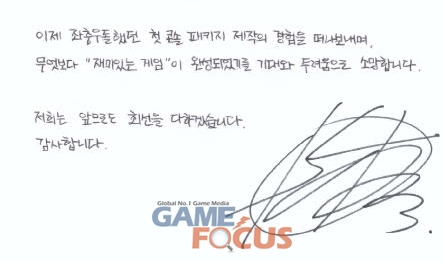 이제 좌충우돌했던 첫 콘솔 패키지 제작의 경험을 떠나보내며,
무엇보다 "재미있는 게임"이 완성되었기를 기대와 두려움으로 소망합니다.
저희는 앞으로도 최선을 다하겠습니다.
감사합니다.
Global No.1 Game Media
GAME
FOCUS